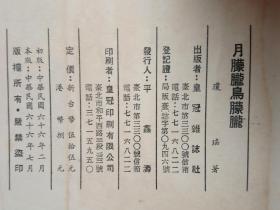 月朦朧鳥朦朧
瓊瑤著
出版者：皇冠雜誌社
臺北市第三三〇〇號信箱
電話：七七一六八二二
登記證：局版臺誌字第〇九四六號
發行人：平鑫濤
臺北市第三三〇〇號信箱
電話：七七一六八二二
印刷者：皇冠印刷有限公司
臺北市和平西路三段三號
電話：三七一五九五〇
定價：新台幣伍拾伍元
港幣捌元
初版：中華民國六十六年二月
本版：中華民國六十六年七月
版權所有•嚴禁盜印